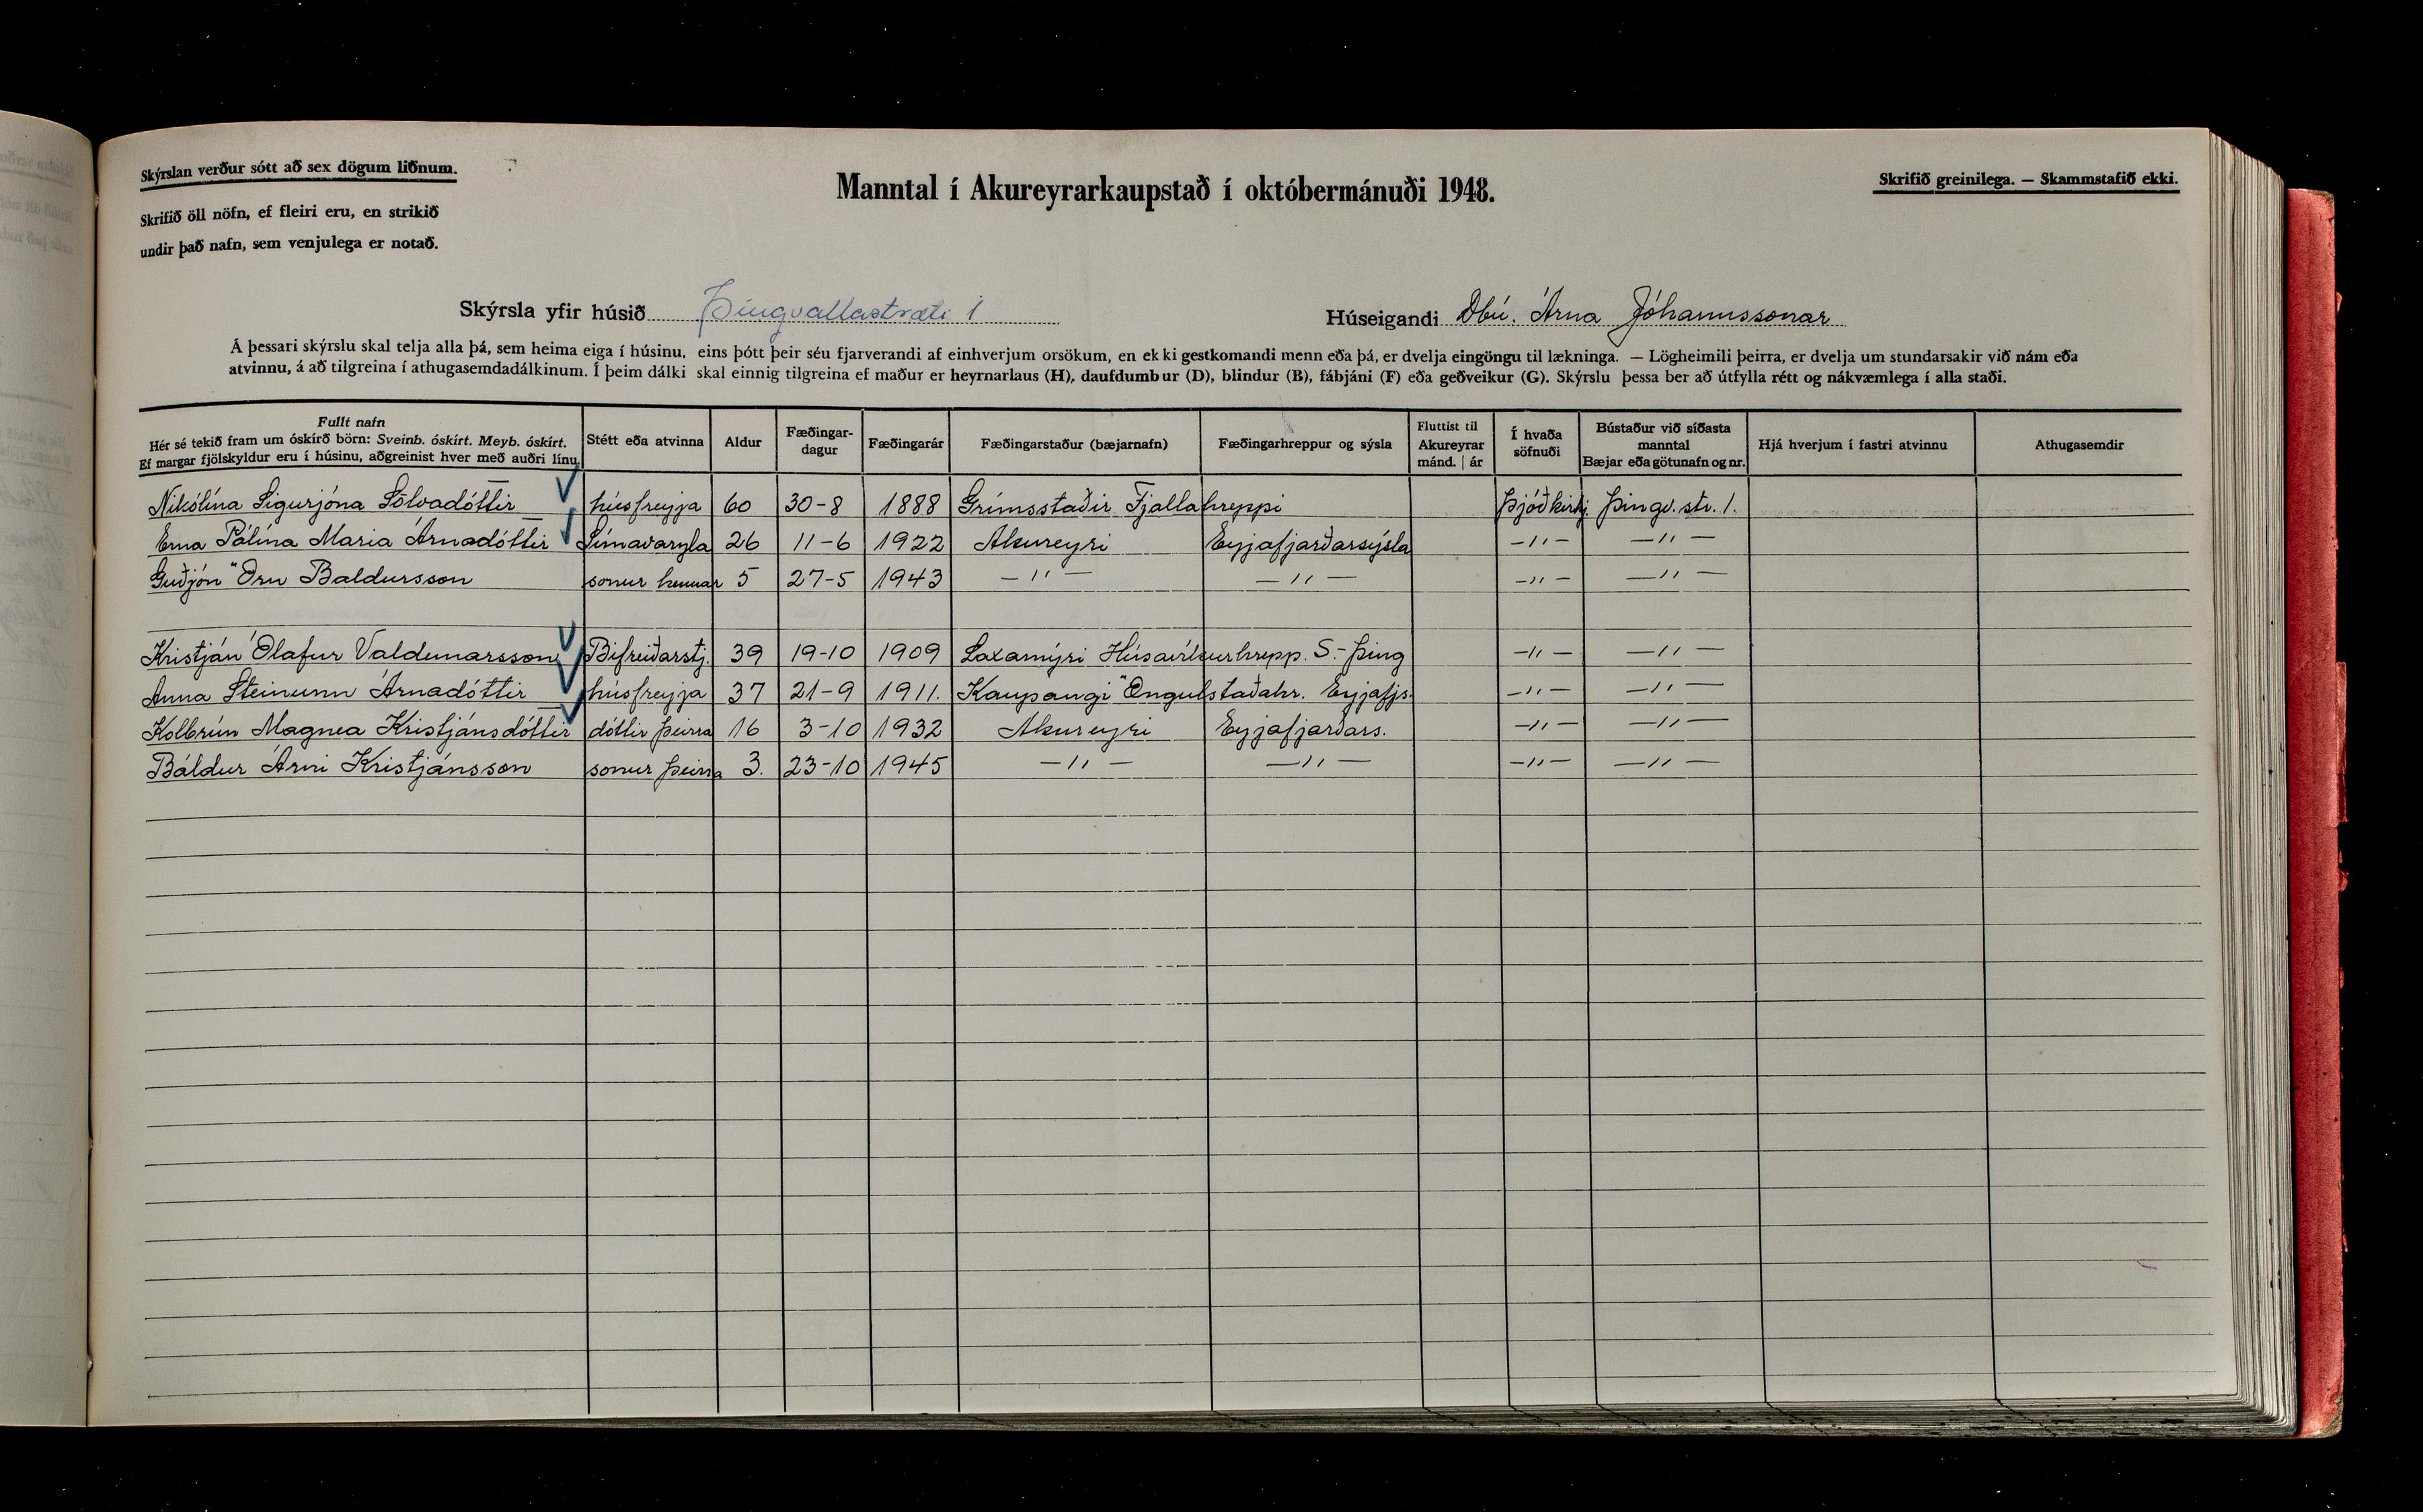 Skýrslan verður sótt að sex dögum liðnum.
Skrifið öll nöfn, ef fleiri eru, en strikið
undir það nafn, sem venjulega er notað.
Manntal í Akureyrarkaupstað í októbermánuði 1948.
Skrifið greinilega. — Skammstafið ekki.
Skýrsla yfir húsið Þingvallastræti 1
Húseigandi Dbú. Árna Jóhannssonar
Á þessari skýrslu skal telja alla þá, sem heima eiga í húsinu, eins þótt þeir séu fjarverandi af einhverjum orsökum, en ekki gestkomandi menn eða þá, er dvelja eingöngu til lækninga. — Lögheimili þeirra, er dvelja um stundarsakir við nám eða
atvinnu, á að tilgreina í athugasemdadálkinum. Í þeim dálki skal einnig tilgreina ef maður er heyrnarlaus (H), daufdumbur (D), blindur (B), fábjáni (F) eða geðveikur (G). Skýrslu þessa ber að útfylla rétt og nákvæmlega í alla staði.
Fullt nafn
Hér sé tekið fram um óskírð börn: Sveinb. óskírt. Meyb. óskírt.
Ef margar fjölskyldur eru í húsinu, aðgreinist hver með auðri línu.
Stétt eða atvinna
Aldur
Fæðingar-
dagur
Fæðingarár
Fæðingarstaður (bæjarnafn)
Fæðingarhreppur og sýsla
Fluttist til
Akureyrar
mánd. | ár
Í hvaða
söfnuði
Bústaður við síðasta
manntal
Bæjar eða götunafn og nr.
Hjá hverjum í fastri atvinnu
Athugasemdir
Nikólína Sigurjóna Sölvadóttir húsfreyja 60 30-8 1888 Grímsstaðir Fjallahreppi Þjóðkirkj. Þingv.str. 1.
Erna Pálína Maria Árnadóttir Símavarzla 26 11-6 1922 Akureyri Eyjafjarðarsýsla —"— —"—
Guðjón Örn Baldursson sonur hennar 5 27-5 1943 —"— —"— —"— —"—
Kristján Ólafur Valdemarsson Bifreiðarstj. 39 19-10 1909 Laxamýri Húsavíkurhrepp. S.-Þing —"— —"—
Anna Steinunn Árnadóttir húsfreyja 37 21-9 1911. Kaupangi Öngulstaðahr. Eyjafjs. —"— —"—
Kolbrún Magnea Kristjánsdóttir dóttir þeirra 16 3-10 1932 Akureyri Eyjafjarðars. —"— —"—
Baldur Árni Kristjánsson sonur þeirra 3. 23-10 1945 —"— —"— —"— —"—